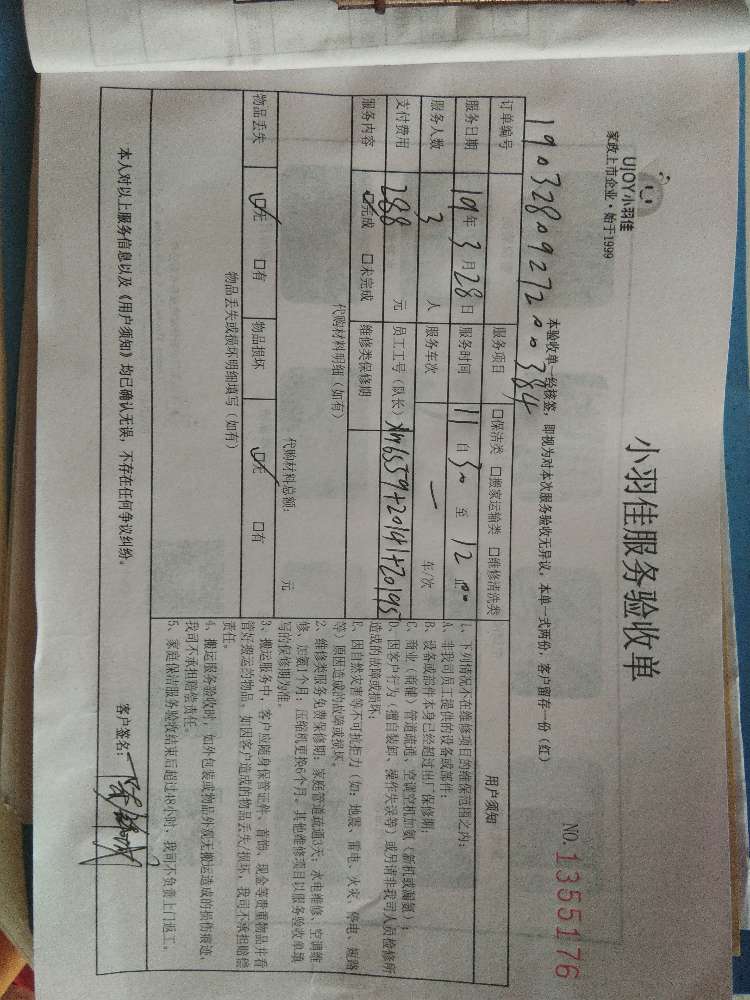 UJOY小羽佳
家政上市企业·始于1999
小羽佳服务验收单
NO.1355176
本验收单一经核签，即视为对本次服务验收无异议，本单一式两份，客户留存一份（红）
订单编号 1903280927200384
服务项目 口保洁类 口搬家运输类 口维修清洗类
服务日期 19年3月28日 服务时间 11自30至12 00止
服务人数 3人 服务车次 一 车/次
支付费用 288元 员工工号（队长） xm6559+20141+20195
服务内容 ☑完成 口未完成 维修类保修期
代购材料明细（如有）
代购材料总额： 元
物品丢失 ☑无 口有 物品损坏 ☑无 口有
物品丢失或损坏明细填写（如有）
用户须知
1、下列情况不在维修项目的维保范围之内：
A、非我司员工提供的设备或部件；
B、设备或部件本身已经超过出厂保修期；
C、商业（商铺）管道疏通、空调空机加氨（新机或漏氨）；
D、因客户行为（擅自装卸、操作失误等）或另请非我司人员检修所
造成的故障或损坏；
E、因自然灾害等不可抗拒力（如：地震、雷电、火灾、停电、短路
等）原因造成的故障或损坏。
2、维修类服务免费保修期：家庭管道疏通3天；水电维修、空调维
修、加氨1个月；压缩机更换6个月。其他维修项目以服务验收单填
写的保修期为准。
3、搬运服务中，客户应随身保管证件、首饰、现金等贵重物品并看
管好搬运的物品，如因客户造成的物品丢失/损坏，我司不承担赔偿
责任。
4、搬运服务验收时，如外包装或物品外观无搬运造成的损伤痕迹，
我司不承担赔偿责任。
5、家庭保洁服务验收结束后超过48小时，我司不负责上门返工。
本人对以上服务信息以及《用户须知》均已确认无误，不存在任何争议纠纷。
客户签名：